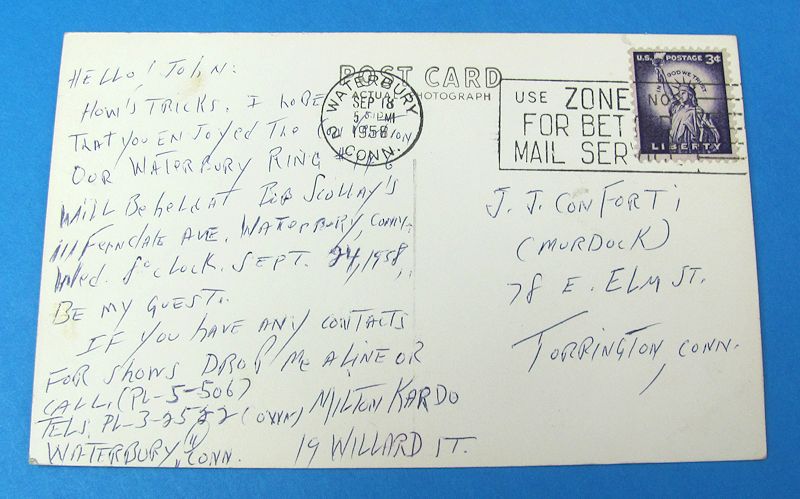 POST CARD
ACTUAL PHOTOGRAPH
WATERBURY
SEP 18
PM
1958
CONN.
USE ZONE NO
FOR BET
MAIL SER
U.S. POSTAGE 3¢
IN GOD WE TRUST
LIBERTY
HELLO! JOHN:
HOW'S TRICKS. I HOPE
THAT YOU ENJOYED THE CONVENTION
OUR WATERBURY RING
WILL BE HELD AT BOB SCULLAY'S
111 FERNDALE AVE. WATERBURY, CONN.
WED. 8 O'CLOCK. SEPT. 24, 1958,
BE MY GUEST.
IF YOU HAVE ANY CONTACTS
FOR SHOWS DROP ME A LINE OR
CALL. (PL-5-5067
TELS. PL-3-2522 MILTON KARDO
WATERBURY, CONN. 19 WILLARD ST.
J. J. CONFORTI
(MURDOCK)
78 E. ELM ST.
TORRINGTON, CONN.